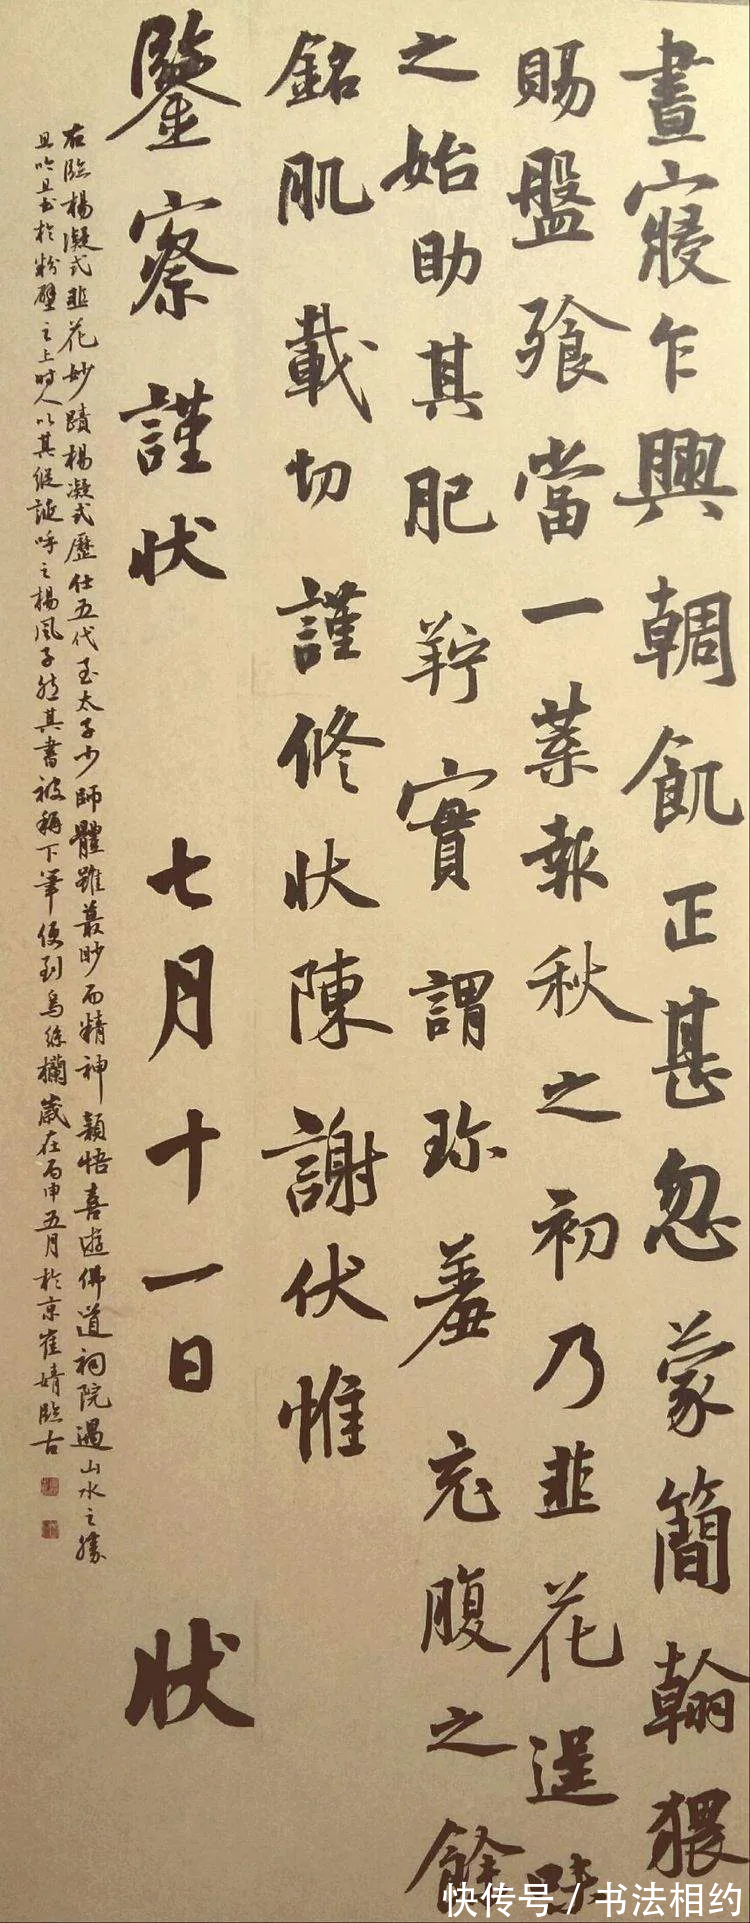 晝寢乍興朝飢正甚忽蒙簡翰猥
賜盤飧當一葉報秋之初乃韭花逞味
之始助其肥羜實謂珍羞充腹之餘
銘肌載切謹修狀陳謝伏惟
鑒察謹狀 七月十一日 狀
右臨楊凝式韭花妙蹟楊凝式歷仕五代至太子少師體雖蕞眇而精神穎悟喜遊佛道祠院遇山水之勝
且吟且書於粉壁之上時人以其縱誕呼之楊風子然其書被稱下筆便到烏絲欄歲在丙申五月於京崔婧臨古
快传号/书法相约